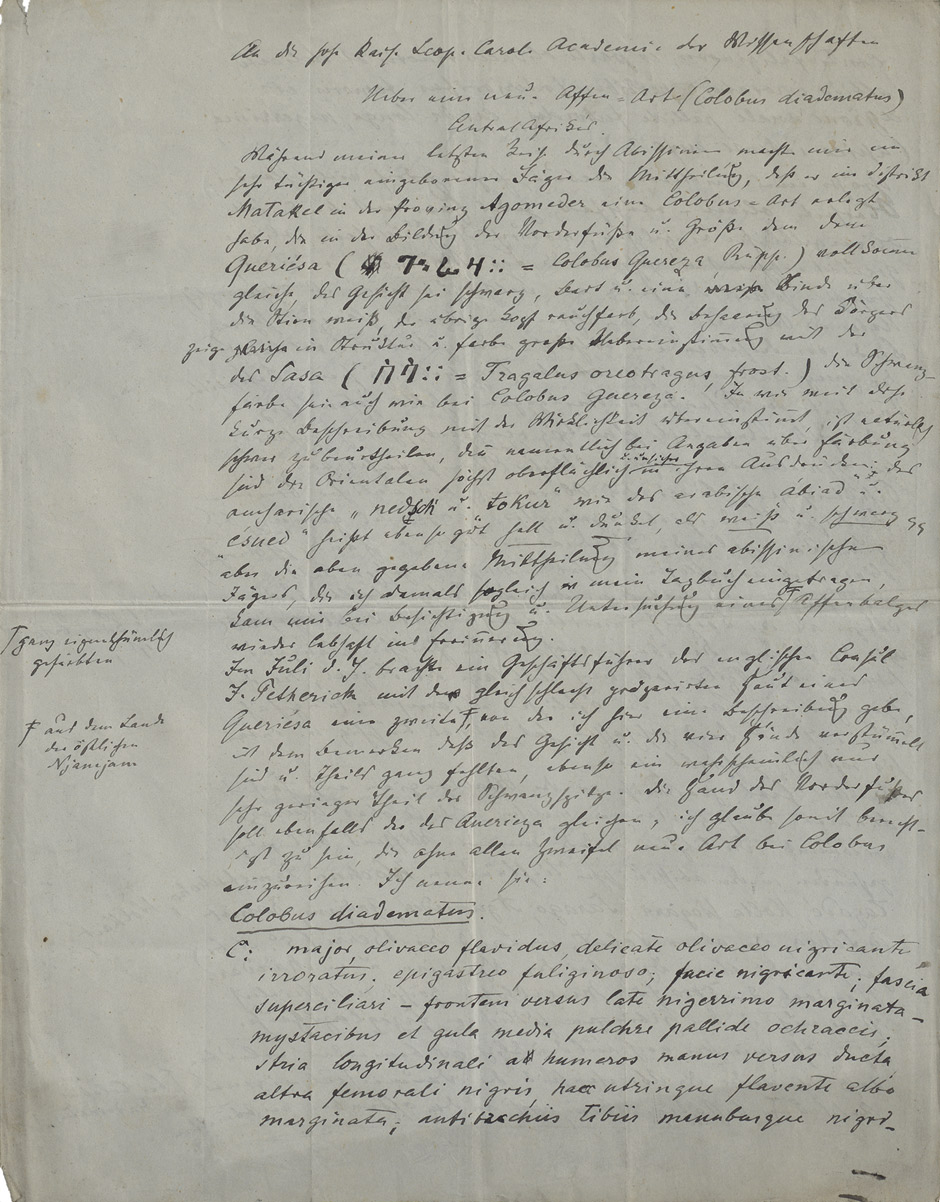 An die hohe Kais. Leop. Carol. Academie der Wissenschaften
Ueber eine neue Affen-Art (Colobus diadematus)
CentralAfrikas.
Während meiner letzten Reise durch Abissinien machte mir ein
sehr tüchtiger eingeborener Jäger die Mittheilung, daß er im Distrikt
Matakkel in der Provinz Agomeder eine Colobus-Art erlegt
habe, die in der Bildung der Vorderfüße u. Größe dem dem
Queriésa ( = Colobus Guereza, Rüpp.) vollkomm
gleiche, das Gesicht sei schwarz, Bart u. eine Binde über
die Stirn weiß, der übrige Kopf rauchfarb, die Behaarung des Körpers
zeige in Struktur u. Farbe große Uebereinstimmung mit der
des Sasa ( = Tragalus oreotragus, frost.) die Schwanz-
farbe sei auch wie bei Colobus Guereza. In wie weit diese
kurze Beschreibung mit der Wirklichkeit übereinstimmt, ist natürlich
schwer zu beurtheilen, denn namentlich bei Angaben über Färbung
sind die Orientalen höchst oberflächlich u. unsicher in ihren Ausdrücken; das
amharische „nedsch u. tokur" wie das arabische Abiad u.
"ésued" heißt ebenso gut hell u. dunkel, als weiß u. schwarz
aber die oben gegebene Mittheilung meines abissinischen
Jägers, die ich damals sogleich in mein Tagbuch eingetragen,
kam mir bei Besichtigung u. Untersuchung eines Affenbalges
wieder lebhaft ins Erinnerung.
Im Juli d. J. brachte ein Geschäftsführer des englischen Consul
J. Petherick mit der gleich schlecht präparirten Haut eines
Queriésa eine zweite, von der ich hier eine Beschreibung gebe,
mit dem Bemerken daß das Gesicht u. die vier Hände verstümmelt
sind u. Theils ganz fehlten, ebenso ein wahrscheinlich nur
sehr geringer Theil der Schwanzspitze. Die Hand des Vorderfußes
soll ebenfalls der des Querieza gleichen; ich glaube somit berecht-
igt zu sein, die ohne allen Zweifel neue Art bei Colobus
einzureihen. Ich nenne sie:
Colobus diadematus.
C: major, olivaceo flavidus, delicate olivaceo nigricante
irroratus. epigastreo fuliginoso; facie nigricante; fascia
superciliari – frontem versus late nigerrimo marginata –
mystacibus et gula media pulchre pallide ochraceis;
stria longitudinali ad humeros manus versus ducta
altra femorali nigris, hac utrinque flavente albo
marginata; antibrachiis tibiis manubusque nigri-
ganz eigenthümlich
gefärbten
aus dem Lande
der östlichen
Njamjam